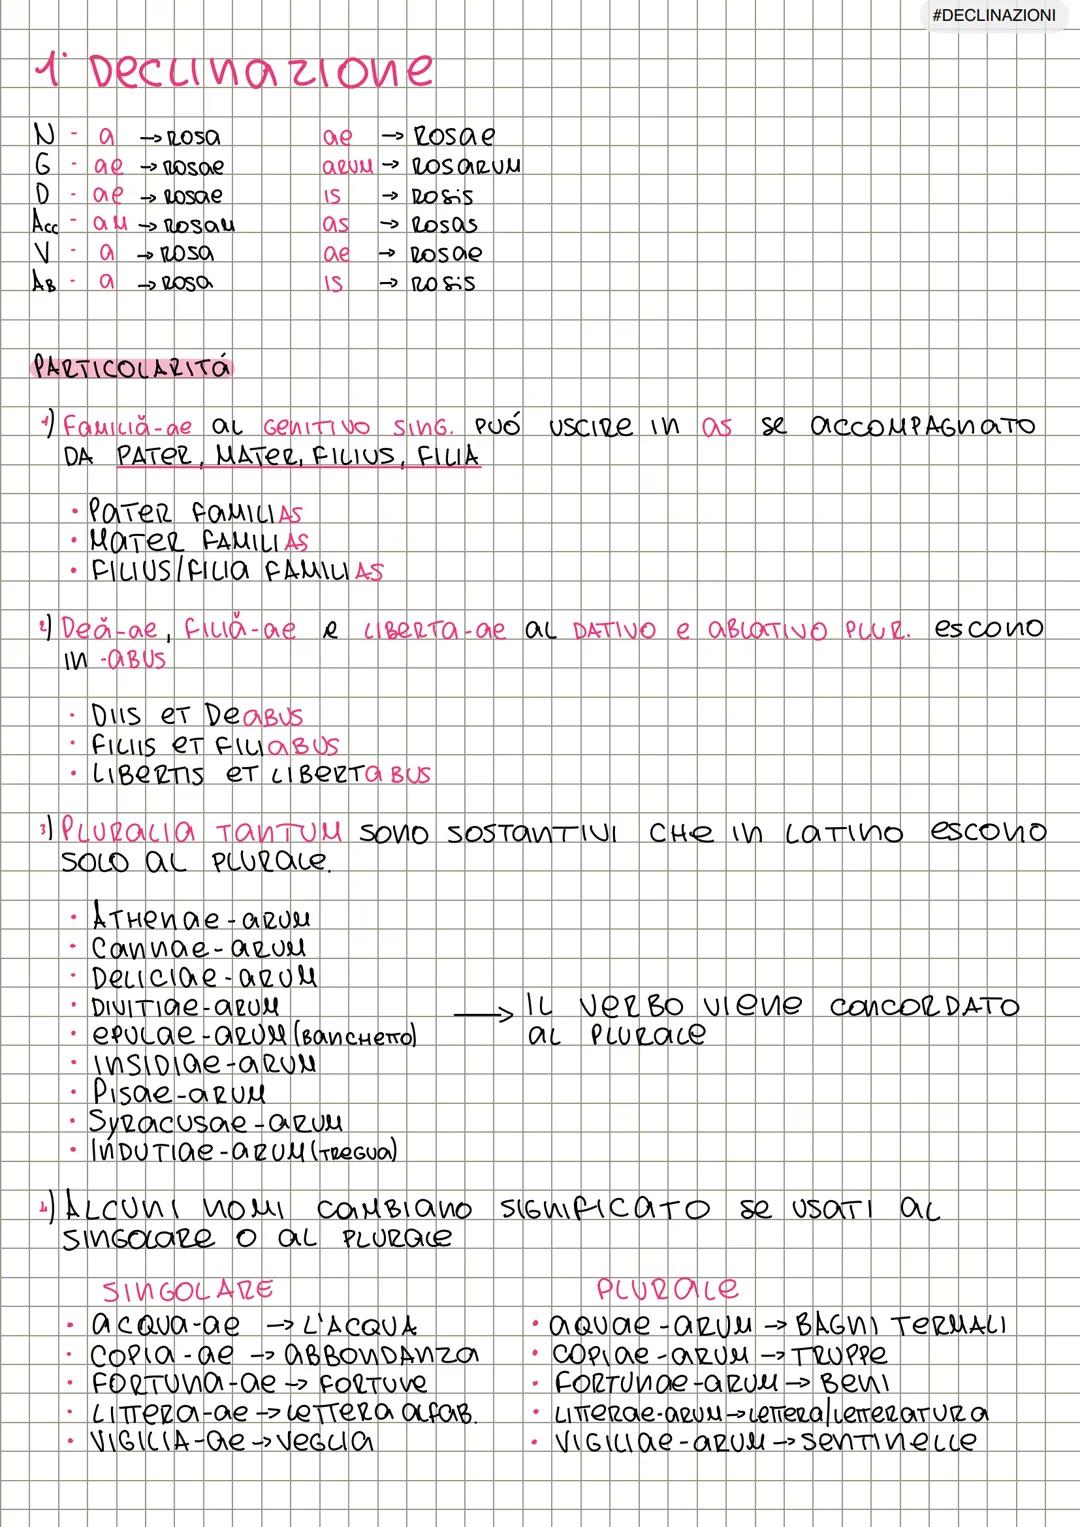 #DECLINAZIONI
1° DECLINAZIONE
N - a → ROSA ae → ROSae
G - ae → ROSae aRUM → ROSaRUM
D - ae → ROSae IS → ROSIS
Acc - aM → ROSaM as → ROSaS
V - a → ROSa ae → ROSae
AB - a → ROSa IS → ROSIS
PARTICOLARITÁ
1) FAMILIĂ-ae AL GENITIVO SING. PUÓ USCIRE IN as SE ACCOMPAGNATO
DA PATER, MATER, FILIUS, FILIA
• PATER FAMILIAS
• MATER FAMILIAS
• FILIUS/FILIA FAMILIAS
2) DEĂ-ae, FILIĂ-ae e LIBERTA-ae AL DATIVO e ABLATIVO PLUR. ESCONO
IN -ABUS
• DIIS ET DEABUS
• FILIIS ET FILIABUS
• LIBERTIS ET LIBERTABUS
3) PLURALIA TANTUM SONO SOSTANTIVI CHE IN LATINO ESCONO
SOLO AL PLURALE.
• ATHENae-aRUM
• CANNae-aRUM
• DELICIae-aRUM
• DIVITIae-aRUM → IL VERBO VIENE CONCORDATO
• EPULae-aRUM (BANCHETTO) AL PLURALE
• INSIDIae-aRUM
• PISae-aRUM
• SYRACUSae-aRUM
• INDUTIae-aRUM (TREGUA)
4) ALCUNI NOMI CAMBIANO SIGNIFICATO SE USATI AL
SINGOLARE O AL PLURALE
SINGOLARE PLURALE
• ACQUA-ae → L'ACQUA • AQUae-aRUM → BAGNI TERMALI
• COPIA-ae → ABBONDANZA • COPIae-aRUM → TRUPPE
• FORTUNA-ae → FORTUNE • FORTUNae-aRUM → BENI
• LITTERA-ae → LETTERA ALFAB. • LITTERae-aRUM → LETTERA/LETTERATURA
• VIGILIA-ae → VEGLIA • VIGILIae-aRUM → SENTINELLE